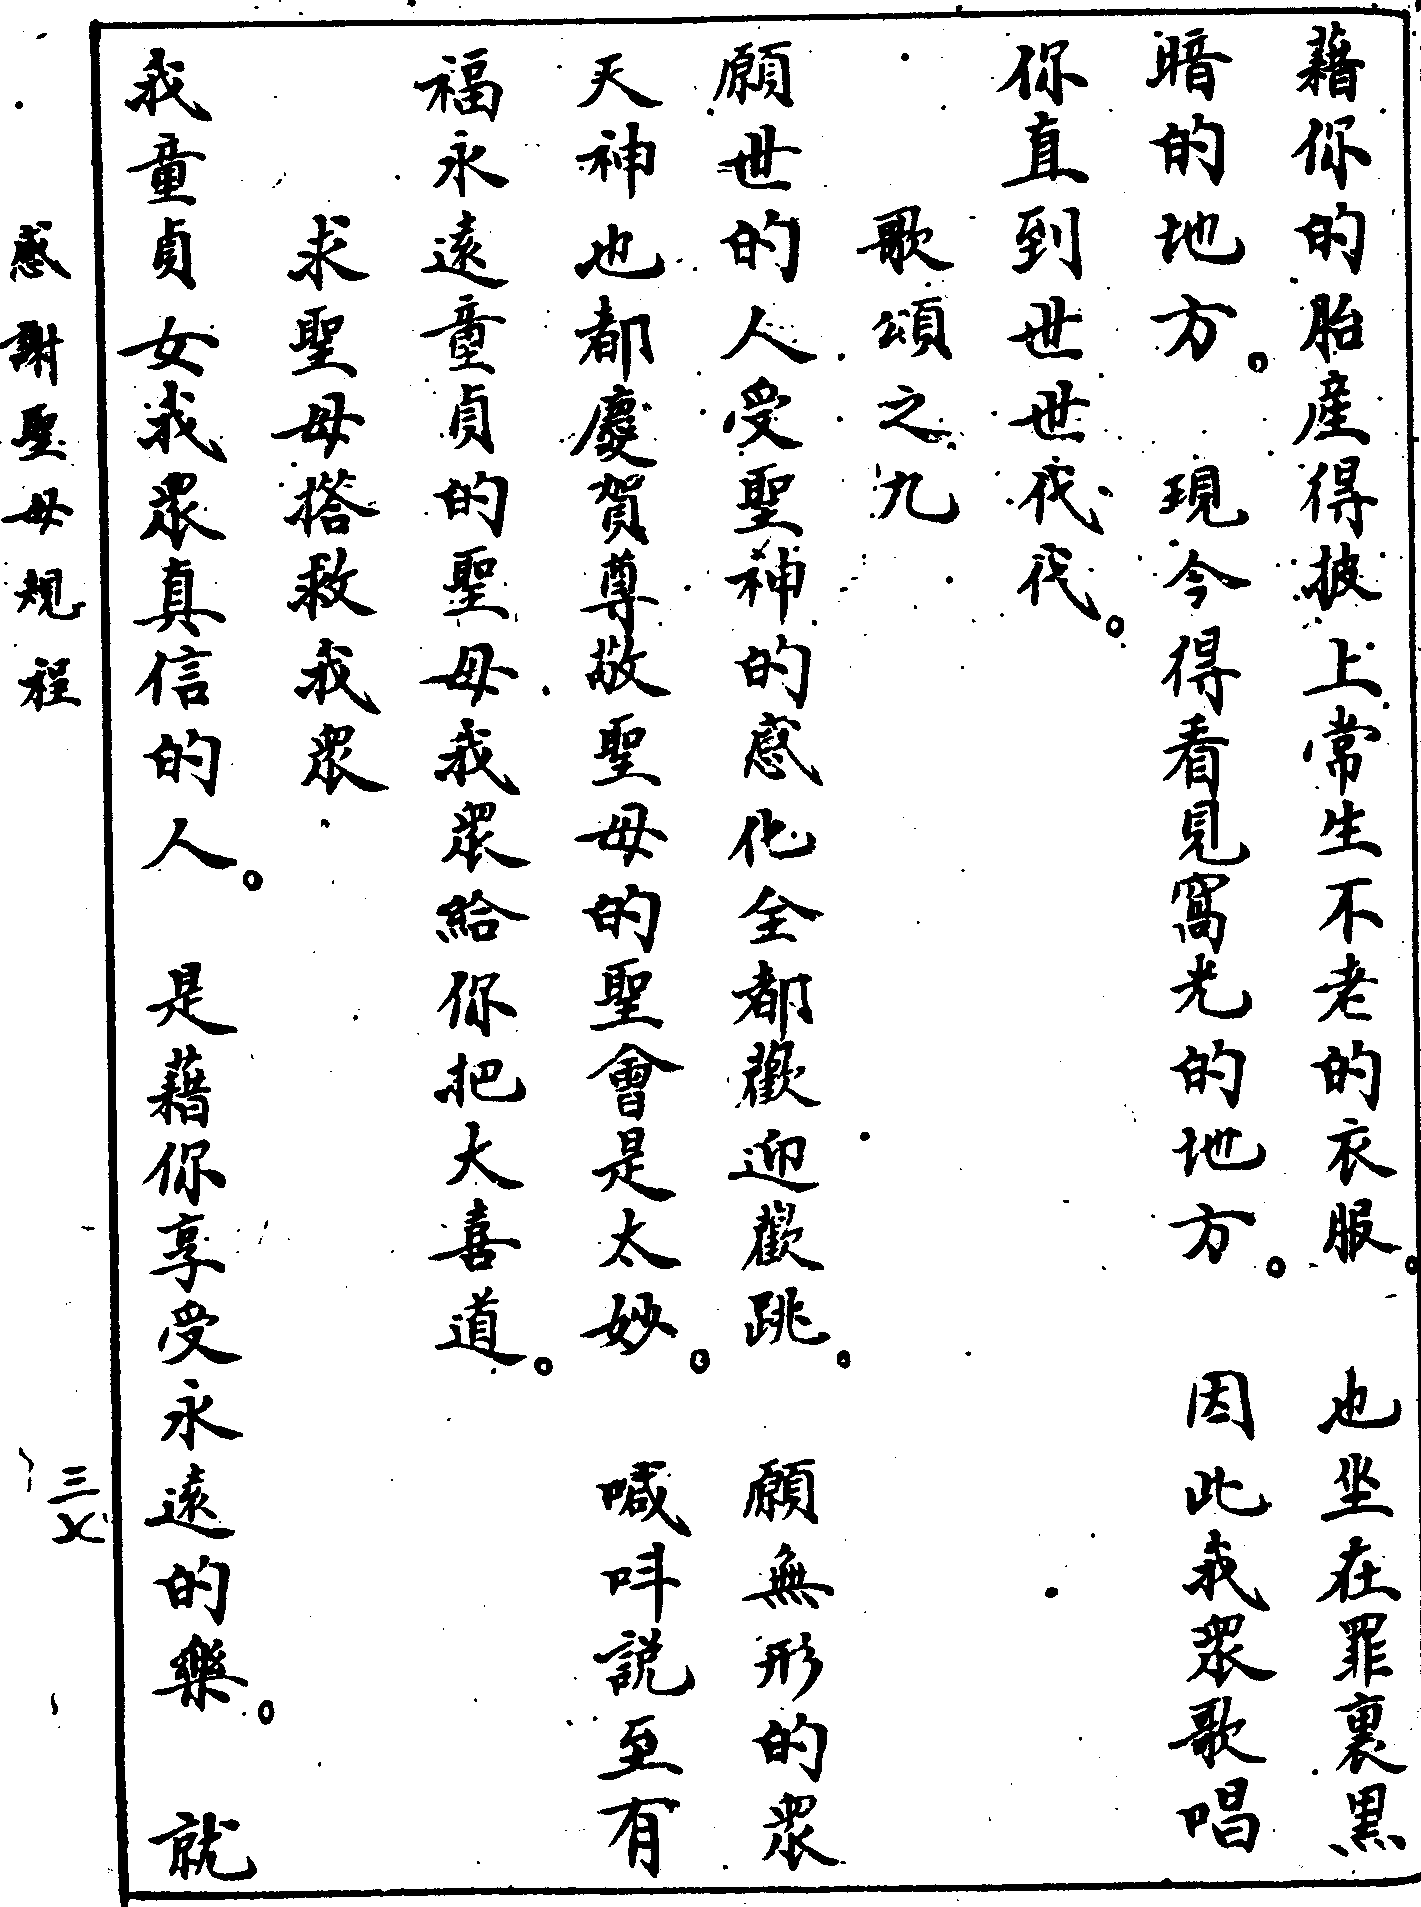 藉你的胎產得披上常生不老的衣服。　也坐在罪裏黑
暗的地方。　現今得看見窩光的地方。　因此我眾歌唱
你直到世世代代。
歌頌之九
願世的人受聖神的感化全都歡迎歡跳。　願無形的眾
天神也都慶賀尊敬聖母的聖會是太妙。　喊呌說至有
福永遠童貞的聖母我眾給你把大喜道。
求聖母搭救我眾
我童貞女我眾真信的人。　是藉你享受永遠的樂。　就
感謝聖母規程
三〤